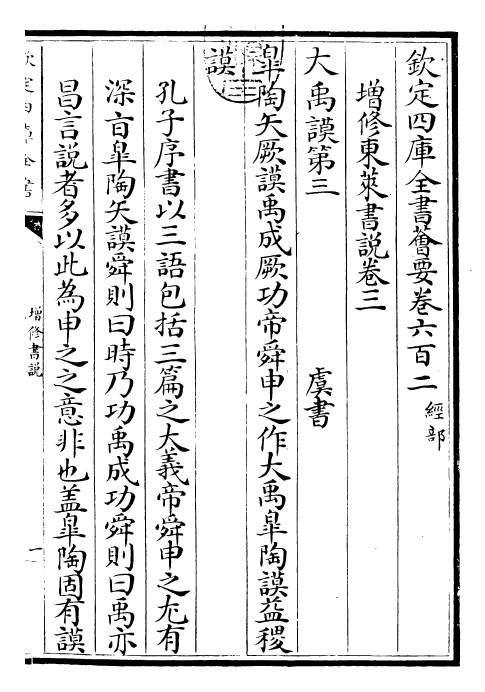 欽定四庫全書薈要卷六百二 經部
增修東萊書說卷三
大禹謨第三 虞書
皐陶矢厥謨禹成厥功帝舜申之作大禹皐陶謨益稷
謨
孔子序書以三語包括三篇之大義帝舜申之尤有
深㫖皐陶矢謨舜則曰時乃功禹成功舜則曰禹亦
昌言說者多以此為申之之意非也盖皐陶固有謨
增修書説
一